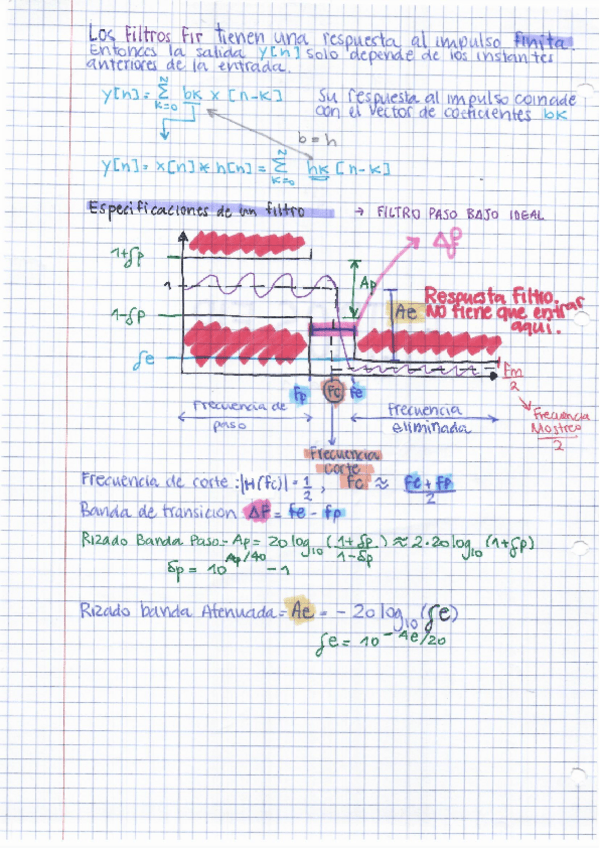 Los Filtros Fir tienen una respuesta al impulso finita.
Entonces la salida y[n] solo depende de los instantes
anteriores de la entrada.
y[n] = Σ k=0 N bk x [n-k]
Su respuesta al impulso coincide
con el vector de coeficientes bk
b = h
y[n] = x[n] * h[n] = Σ k=0 N hk [n-k]
Especificaciones de un filtro → FILTRO PASO BAJO IDEAL
1+δp
Δf
1
Ap
Ae
Respuesta filtro.
NO tiene que entrar
aquí.
1-δp
δe
Fm/2
Fp Fc Fe
Frecuencia de
paso
Frecuencia
eliminada
Frecuencia
Mostreo
2
Frecuencia
corte
Frecuencia de corte: |H(fc)| = 1/2, fc ≈ (fe + fp)/2
Banda de transición Δf = fe - fp
Rizado Banda Paso - Ap = 20 log10 (1+δp / 1-δp) ≈ 2·20 log10 (1+δp)
δp = 10^(Ap/40) - 1
Rizado banda Atenuada = Ae = - 20 log10 (δe)
δe = 10^(-Ae/20)